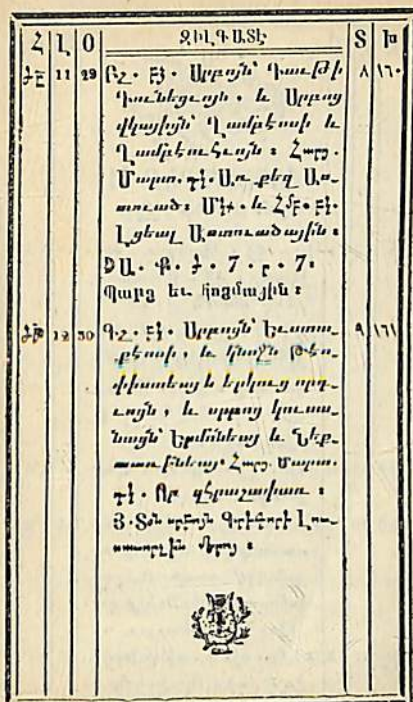 Հ Լ Օ ԶԻԼԳԱՏԷ Տ Խ
ՋԸ 11 29 Բշ. ԲՁ. Սրբոյն՝ Դաւթի ٨ ١٦٠
Դունեցւոյն. և Սրբոց
վկայիցն՝ Ղամբեոսի և
Ղամբեուհւոյն։ Հարց.
Մարտ. դկ. Առ քեզ Աս-
տուած։
Լցեալ Աստուածայլին։
7. ր. 7։
Պարզ եւ կողմային։
ՋԹ 12 30 Գշ. ԲԿ. Սրբոյն՝ Եւստա- ٩ ١٦١
քէոսի, և կնոջն Թէո-
փիստեայ և երկուց որդ-
ւոցն, և սրբոց կուսա-
նացն՝ Երմոնեայ և Եեք-
Հարց. Մարտ.
դկ. Որ զհրաշափառ։
Յ. Տօն սրբոյն Գրիգորի Լու-
սաւորչին մերոյ։